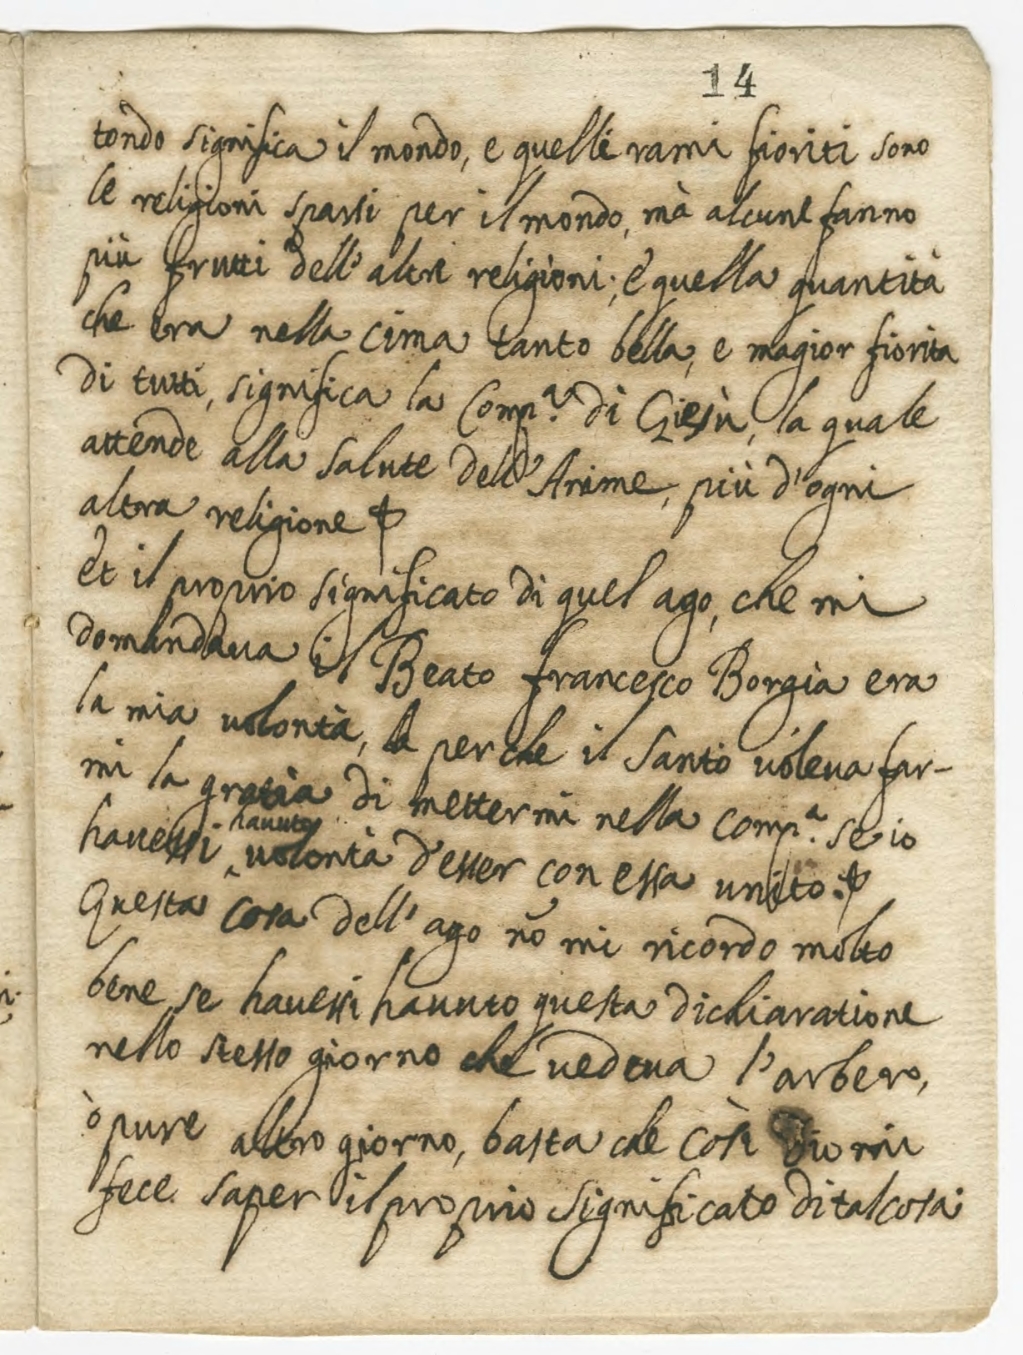 14
tondo significa il mondo, e quelli rami fioriti sono
le religioni sparsi per il mondo, mà alcune fanno
più frutti dell' altri religioni; e quella quantità
che era nella cima tanto bella, e magior fiorita
di tutti, significa la Comp.ª di Giesù, la quale
attende alla salute dell' Anime, più d'ogni
altra religione
Et il proprio significato di quel ago, che mi
domandaua il Beato francesco Borgia era
la mia volontà, perche il Santo voleua far-
mi la gratia di mettermi nella comp.ª se io
hauessi hauuto volontà d'esser con essa unito.
Questa cosa dell' ago nõ mi ricordo molto
bene se hauessi hauuto questa dichiaratione
nello stesso giorno che vedeua l'arbero,
ò pure altro giorno, basta che così Dio mi
fece saper il proprio significato di tal cosa